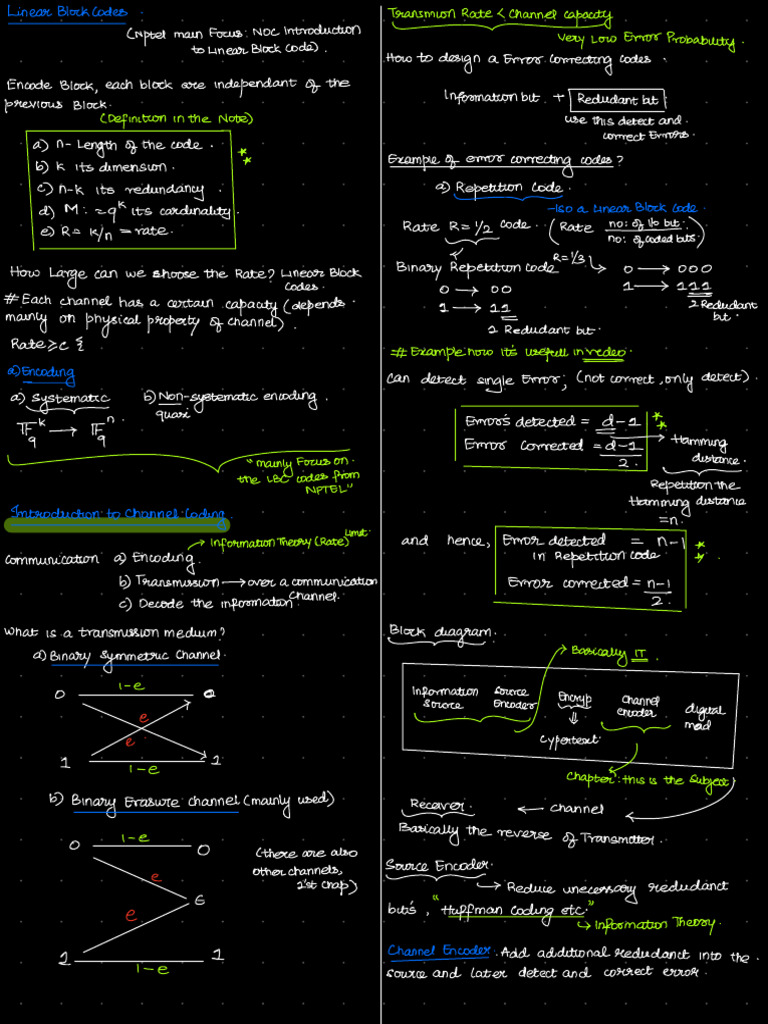 Linear Block Codes.
(Nptel main Focus: NOC Introduction
to Linear Block Code).
Encode Block, each block are independant of the
previous Block.
(Definition in the Note)
a) n- Length of the code.
b) k its dimension.
c) n-k its redundancy.
d) M: = q^k its cardinality.
e) R = k/n = rate.
How Large can we choose the Rate? Linear Block
Codes.
# Each channel has a certain capacity (depends
mainly on physical property of channel).
Rate ≥ c {
a) Encoding
a) Systematic b) Non-systematic encoding.
quasi
𝔽_q^k → 𝔽_q^n
"mainly Focus on
the LBC codes from
NPTEL"
Introduction to Channel Coding.
→ Information Theory (Rate) Limit
Communication a) Encoding
b) Transmission → over a communication
channel.
c) Decode the informaton
What is a transmission medium?
a) Binary symmetric channel.
1-e
0 0
e
e
1 1
1-e
b) Binary Erasure channel (mainly used)
1-e
0 0
e
(there are also
other channels,
1'st chap)
e
1 1
1-e
Transmion Rate < Channel capacity
Very Low Error Probability.
How to design a Error correcting codes.
Information bit + Redudant bit
use this detect and
correct Errors.
Example of error correcting codes?
a) Repetition Code.
Rate R = 1/2 code. (Rate no: of i/o bit / no: of coded bits)
Binary Repetition code R = 1/3 0 → 000
0 → 00
1 → 111
1 → 11
2 Redudant
bit.
2 Redudant bit.
# Example how it's usefull in video.
Can detect single Error; (not correct, only detect).
Error's detected = d-1
Error corrected = d-1 / 2.
→ Hamming
distance.
Repetition the
Hamming distance
= n.
and hence, Error detected = n-1
in Repetition code
Error corrected = n-1 / 2.
Block diagram.
→ Basically IT.
Information Source
Source Encoder
Encryp
Channel
encoder
digital
mod
Cypertext.
Chapter: this is the Subject
Recever. ← channel
Basically the reverse of Transmitter.
Source Encoder.
→ Reduce unecessory redudant
bit's, "Huffman Coding etc."
→ Information Theory.
Channel Encoder. Add additional redudant into the
source and later detect and correct error.